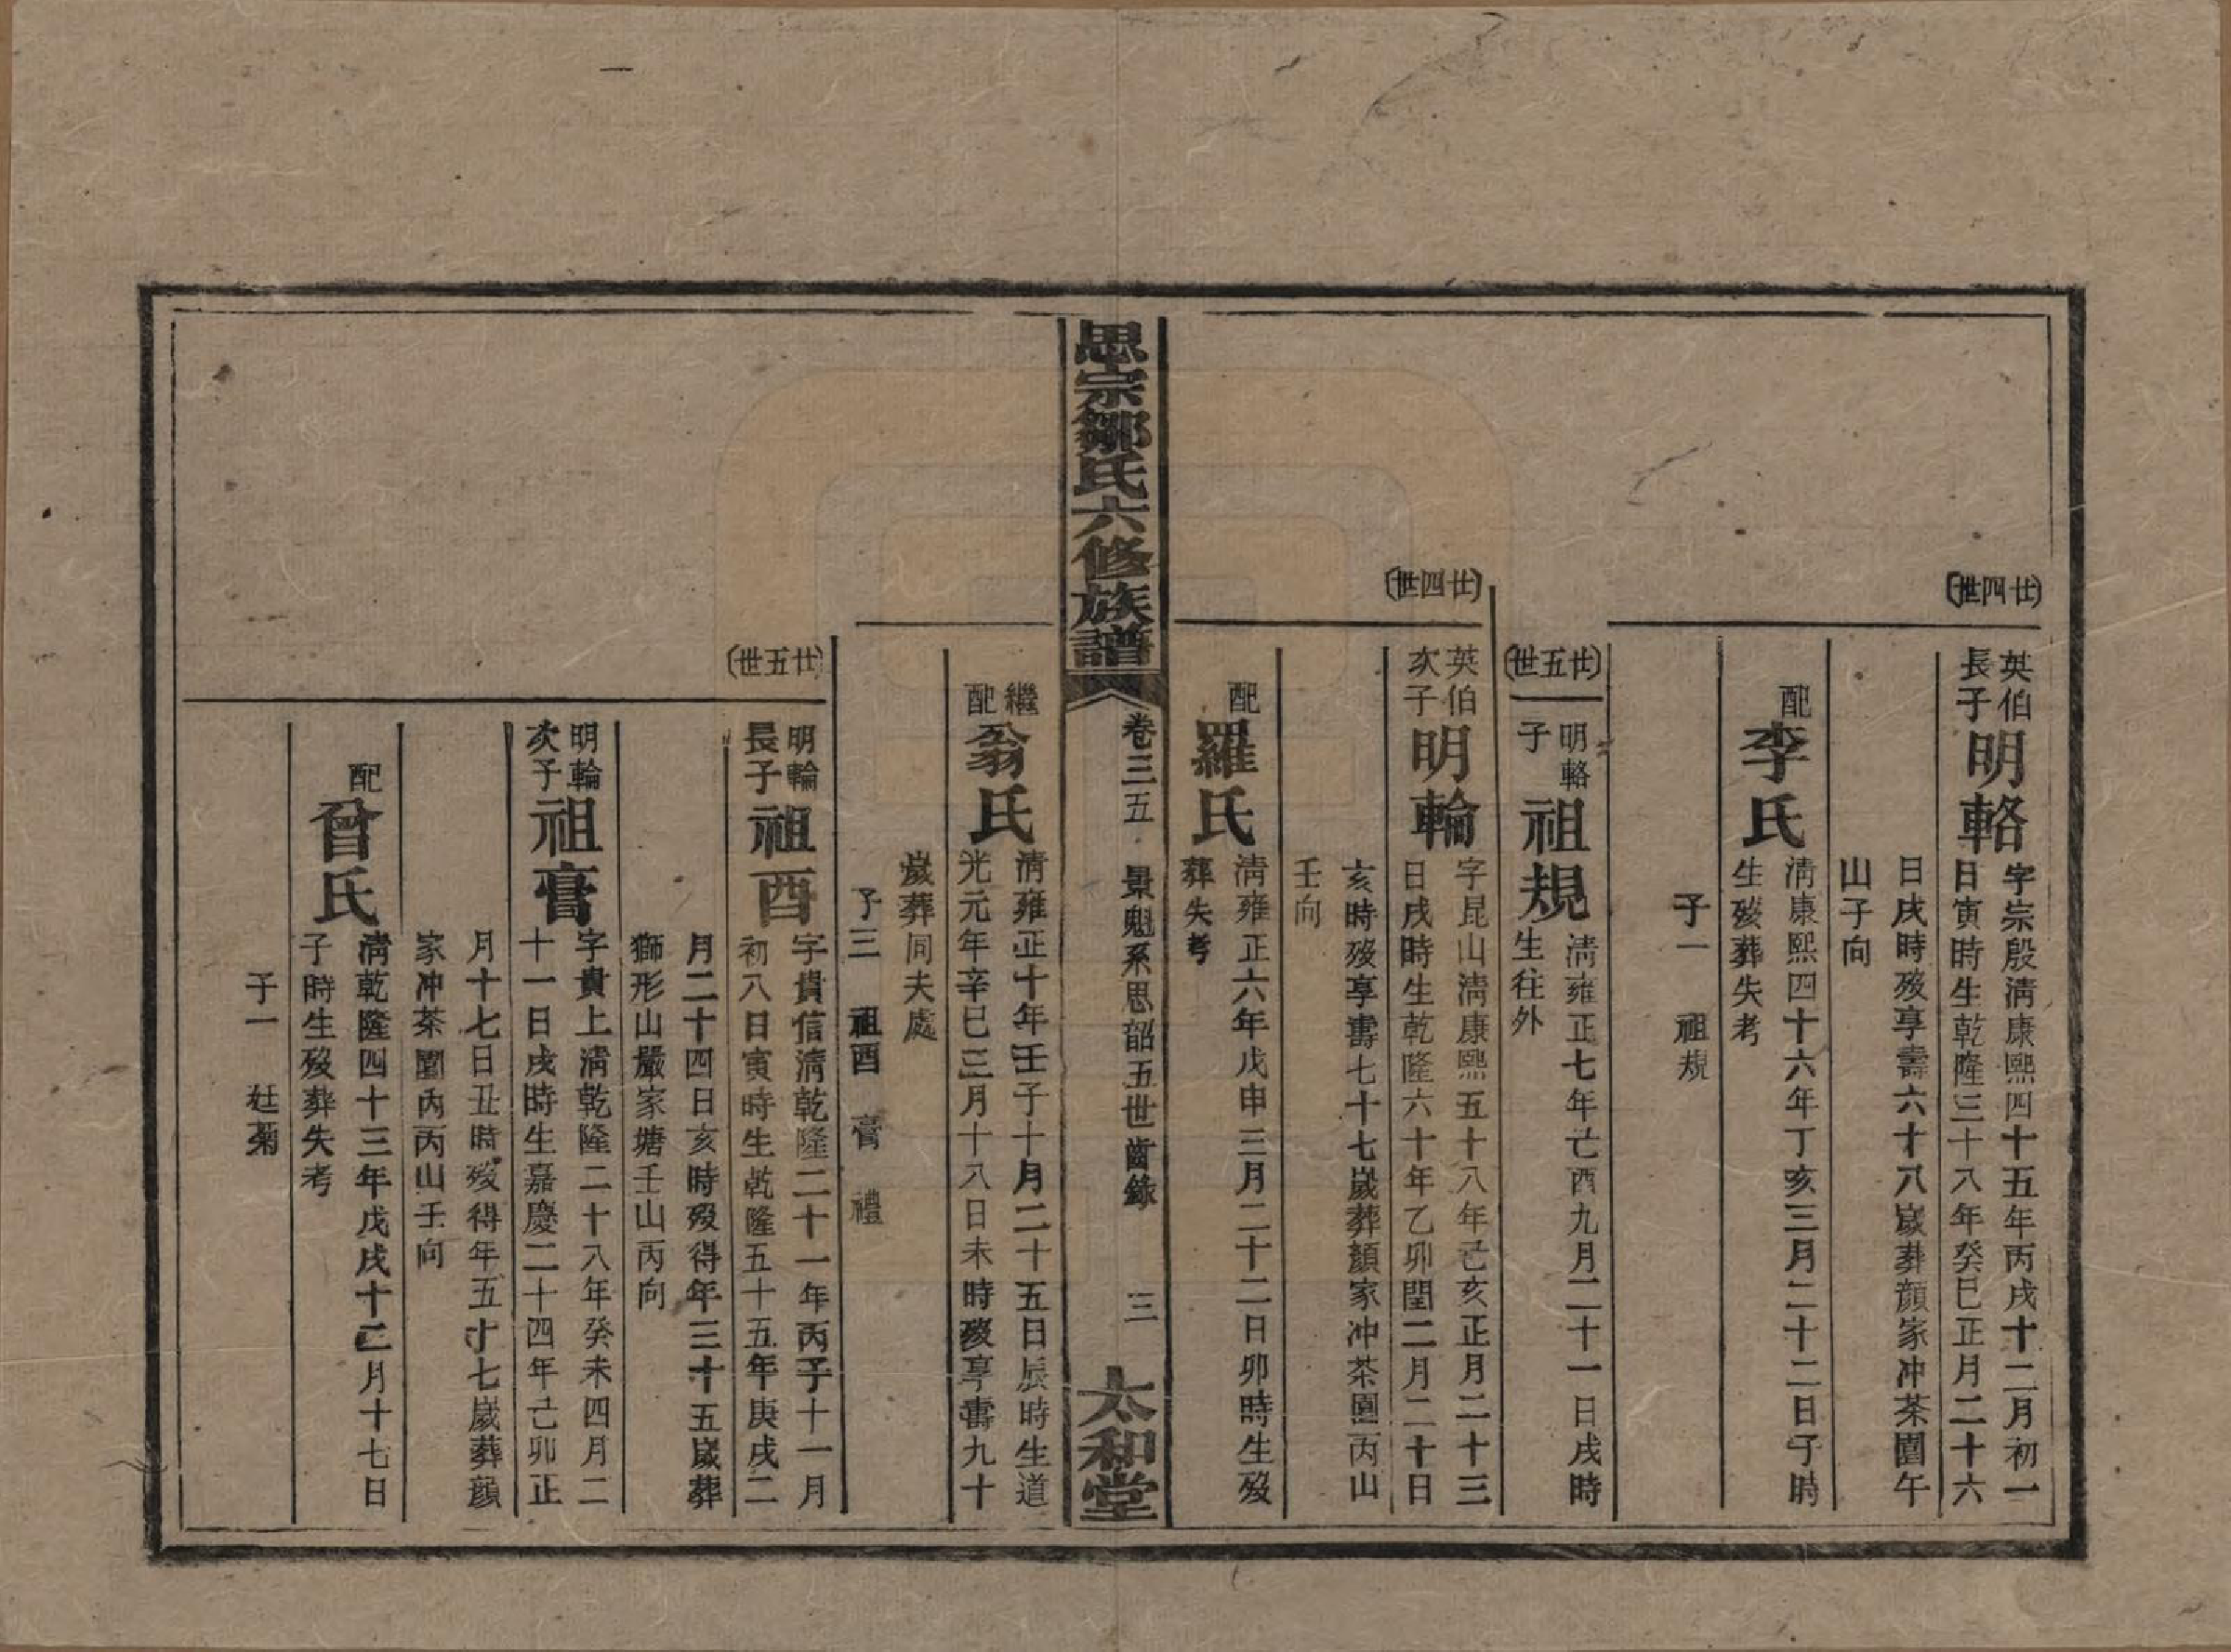 〔廿四世〕
英伯
長子
明輅
字宗殷清康熙四十五年丙戌十二月初一
日寅時生乾隆三十八年癸巳正月二十六
日戌時歿享壽六十八歲葬顏家冲茶園午
山子向
配
李氏
清康熙四十六年丁亥三月二十二日子時
生歿葬失考
子一　祖規
〔廿五世〕
明輅
子
祖規
清雍正七年己酉九月二十一日戌時
生往外
〔廿四世〕
英伯
次子
明輪
字昆山清康熙五十八年己亥正月二十三
日戌時生乾隆六十年乙卯閏二月二十日
亥時歿享壽七十七歲葬顏家冲茶園丙山
壬向
配
羅氏
清雍正六年戊申三月二十二日卯時生歿
葬失考
思宗鄒氏六修族譜
卷三五　景魁系思韶五世齒錄　三
太和堂
繼
配
翁氏
清雍正十年壬子十月二十五日辰時生道
光元年辛巳三月十八日未時歿享壽九十
歲葬同夫處
子三　祖酉　膏　禮
〔廿五世〕
明輪
長子
祖酉
字貴信清乾隆二十一年丙子十一月
初八日寅時生乾隆五十五年庚戌二
月二十四日亥時歿得年三十五歲葬
獅形山嚴家塘壬山丙向
明輪
次子
祖膏
字貴上清乾隆二十八年癸未四月二
十一日戌時生嘉慶二十四年己卯正
月十七日丑時歿得年五十七歲葬顏
家冲茶園內丙山壬向
配
曾氏
清乾隆四十三年戊戌十二月十七日
子時生歿葬失考
子一　廷菊